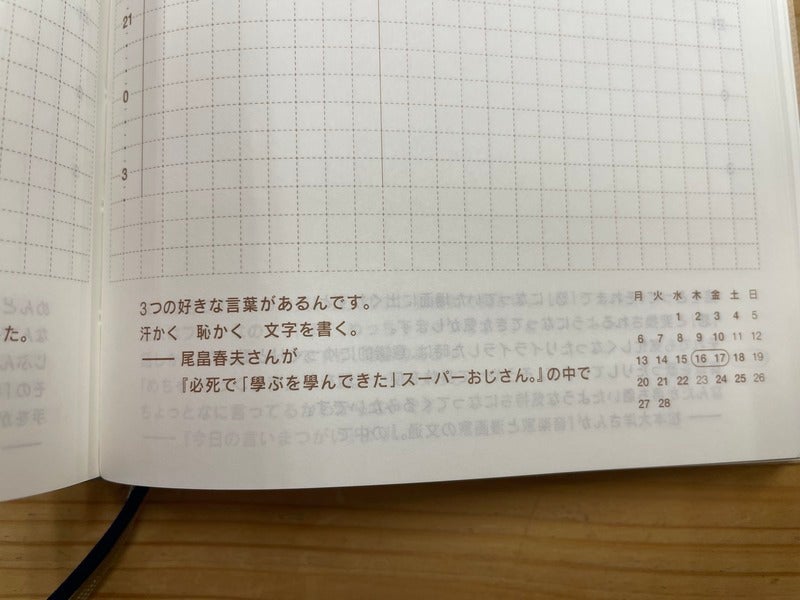 21
0
3
た。
3つの好きな言葉があるんです。
汗かく 恥かく 文字を書く。
―― 尾畠春夫さんが
『必死で「學ぶを學んできた」スーパーおじさん。』の中で
月 火 水 木 金 土 日
1 2 3 4 5
6 7 8 9 10 11 12
13 14 15 16 17 18 19
20 21 22 23 24 25 26
27 28